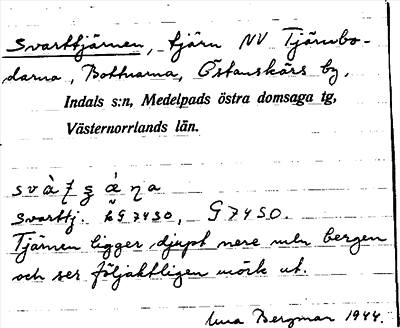 Svarttjärnen, tjärn NV Tjärnbo-
darna, Bottnarna, Östanskärs by,
Indals s:n, Medelpads östra domsaga tg,
Västernorrlands län.
Svarttj. G 7450, G 7450.
Tjärnen ligger djupt nere mln bergen
och ser följaktligen mörk ut.
Bergman 1944.